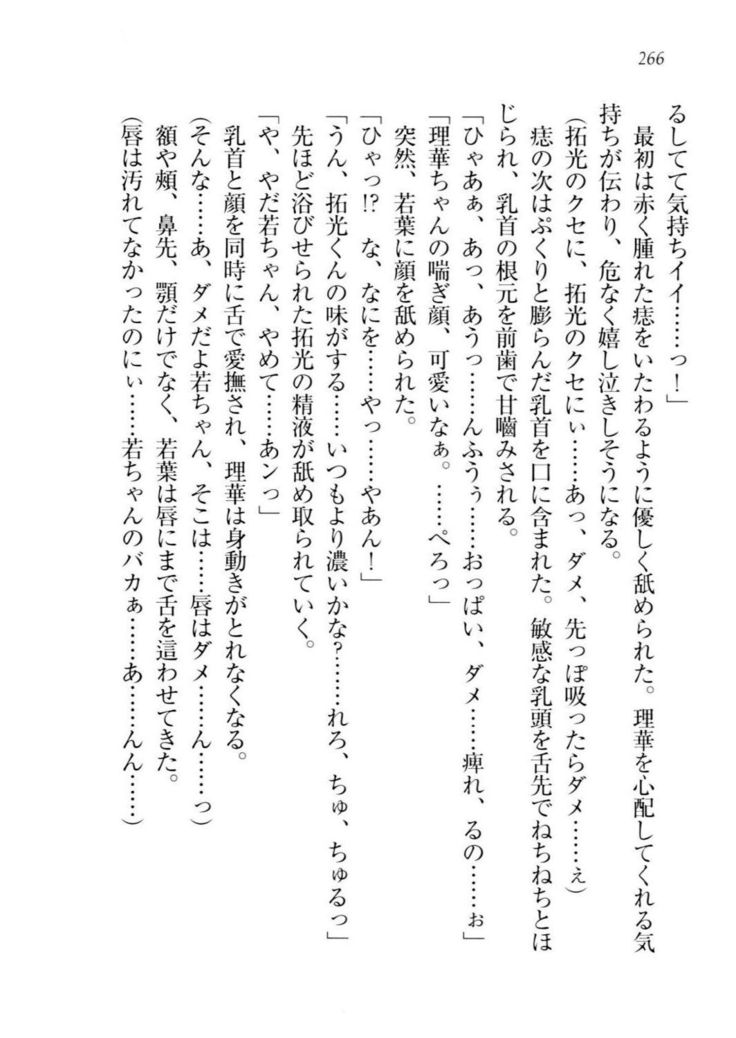 266
るしてて気持ちイイ……っ！」
　最初は赤く腫れた痣をいたわるように優しく舐められた。理華を心配してくれる気
持ちが伝わり、危なく嬉し泣きしそうになる。
（拓光のクセに、拓光のクセにぃ……あっ、ダメ、先っぽ吸ったらダメ……ぇ）
　痣の次はぷくりと膨らんだ乳首を口に含まれた。敏感な乳頭を舌先でねちねちとほ
じられ、乳首の根元を前歯で甘嚙みされる。
「ひゃあぁ、あっ、あうっ……んふうぅ……おっぱい、ダメ……痺れ、るの……ぉ」
「理華ちゃんの喘ぎ顔、可愛いなぁ。……ぺろっ」
　突然、若葉に顔を舐められた。
「ひゃっ!?　な、なにを……やっ……やあん！」
「うん、拓光くんの味がする……いつもより濃いかな？……れろ、ちゅ、ちゅるっ」
　先ほど浴びせられた拓光の精液が舐め取られていく。
「や、やだ若ちゃん、やめて……あンっ」
　乳首と顔を同時に舌で愛撫され、理華は身動きがとれなくなる。
（そんな……あ、ダメだよ若ちゃん、そこは……唇はダメ……ん……っ）
　額や頰、鼻先、顎だけでなく、若葉は唇にまで舌を這わせてきた。
（唇は汚れてなかったのにぃ……若ちゃんのバカぁ……あ……んん……）